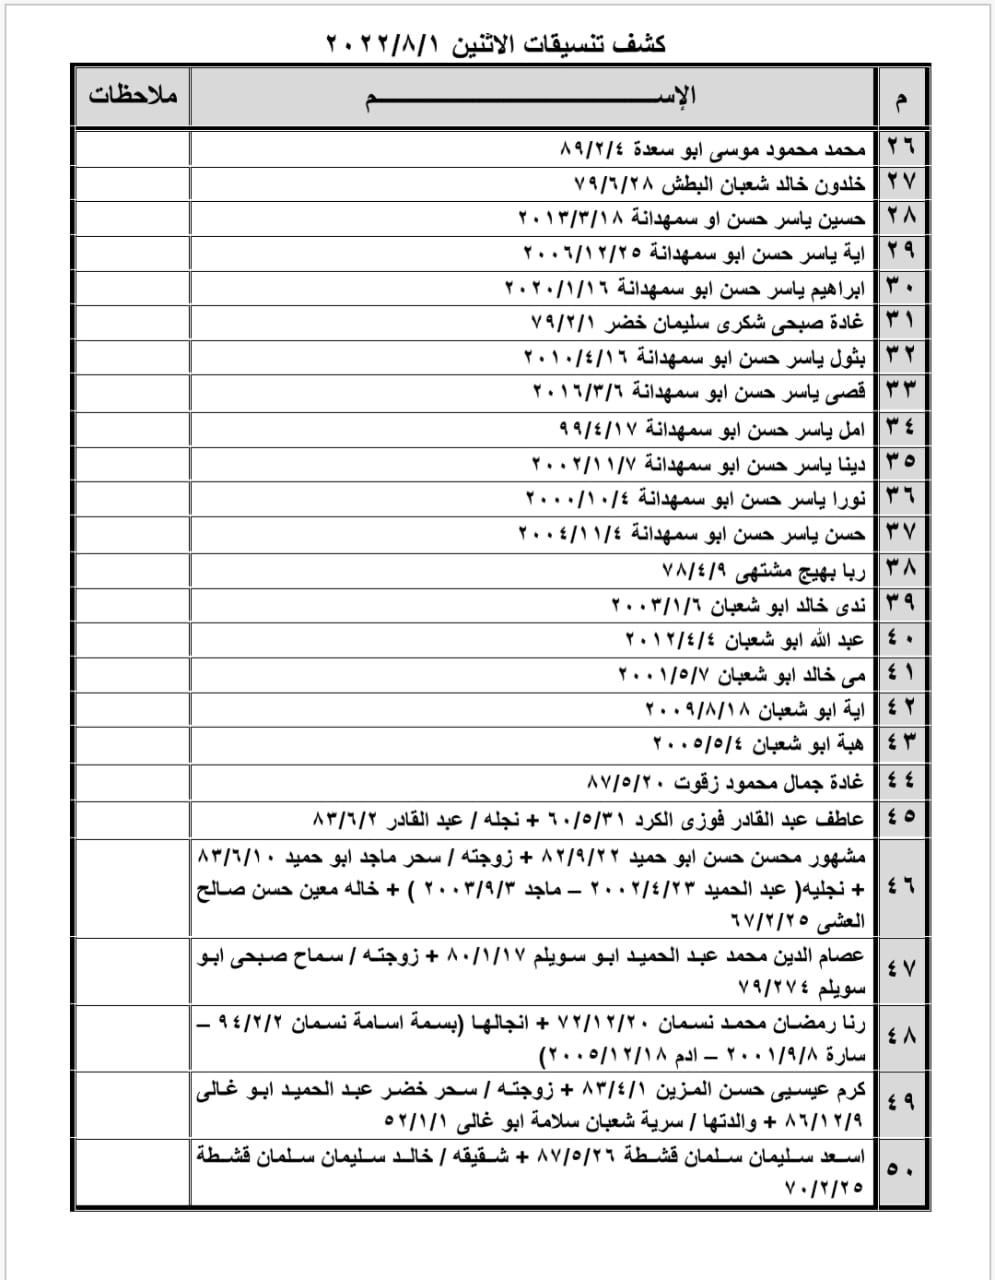 كشف تنسيقات الاثنين ٢٠٢٢/٨/١
م الإســـــم ملاحظات
٢٦ محمد محمود موسى ابو سعدة ٨٩/٢/٤
٢٧ خلدون خالد شعبان البطش ٧٩/٦/٢٨
٢٨ حسين ياسر حسن او سمهدانة ٢٠١٣/٣/١٨
٢٩ اية ياسر حسن ابو سمهدانة ٢٠٠٦/١٢/٢٥
٣٠ ابراهيم ياسر حسن ابو سمهدانة ٢٠٢٠/١/١٦
٣١ غادة صبحى شكرى سليمان خضر ٧٩/٢/١
٣٢ بثول ياسر حسن ابو سمهدانة ٢٠١٠/٤/١٦
٣٣ قصى ياسر حسن ابو سمهدانة ٢٠١٦/٣/٦
٣٤ امل ياسر حسن ابو سمهدانة ٩٩/٤/١٧
٣٥ دينا ياسر حسن ابو سمهدانة ٢٠٠٢/١١/٧
٣٦ نورا ياسر حسن ابو سمهدانة ٢٠٠٠/١٠/٤
٣٧ حسن ياسر حسن ابو سمهدانة ٢٠٠٤/١١/٤
٣٨ ربا بهيج مشتهى ٧٨/٤/٩
٣٩ ندى خالد ابو شعبان ٢٠٠٣/١/٦
٤٠ عبد الله ابو شعبان ٢٠١٢/٤/٤
٤١ مى خالد ابو شعبان ٢٠٠١/٥/٧
٤٢ اية ابو شعبان ٢٠٠٩/٨/١٨
٤٣ هبة ابو شعبان ٢٠٠٥/٥/٤
٤٤ غادة جمال محمود زقوت ٨٧/٥/٢٠
٤٥ عاطف عبد القادر فوزى الكرد ٦٠/٥/٣١ + نجله / عبد القادر ٨٣/٦/٢
٤٦ مشهور محسن حسن ابو حميد ٨٢/٩/٢٢ + زوجته / سحر ماجد ابو حميد ٨٣/٦/١٠
+ نجليه( عبد الحميد ٢٠٠٢/٤/٢٣ – ماجد ٢٠٠٣/٩/٣ ) + خاله معين حسن صالح
العشى ٦٧/٢/٢٥
٤٧ عصام الدين محمد عبد الحميد ابو سويلم ٨٠/١/١٧ + زوجته / سماح صبحى ابو
سويلم ٧٩/٢٧٤
٤٨ رنا رمضان محمد نسمان ٧٢/١٢/٢٠ + انجالها (بسمة اسامة نسمان ٩٤/٢/٢ –
سارة ٢٠٠١/٩/٨ – ادم ٢٠٠٥/١٢/١٨)
٤٩ كرم عيسيى حسن المزين ٨٣/٤/١ + زوجته / سحر خضر عبد الحميد ابو غالى
٨٦/١٢/٩ + والدتها / سرية شعبان سلامة ابو غالى ٥٢/١/١
٥٠ اسعد سليمان سلمان قشطة ٨٧/٥/٢٦ + شقيقه / خالد سليمان سلمان قشطة
٧٠/٢/٢٥